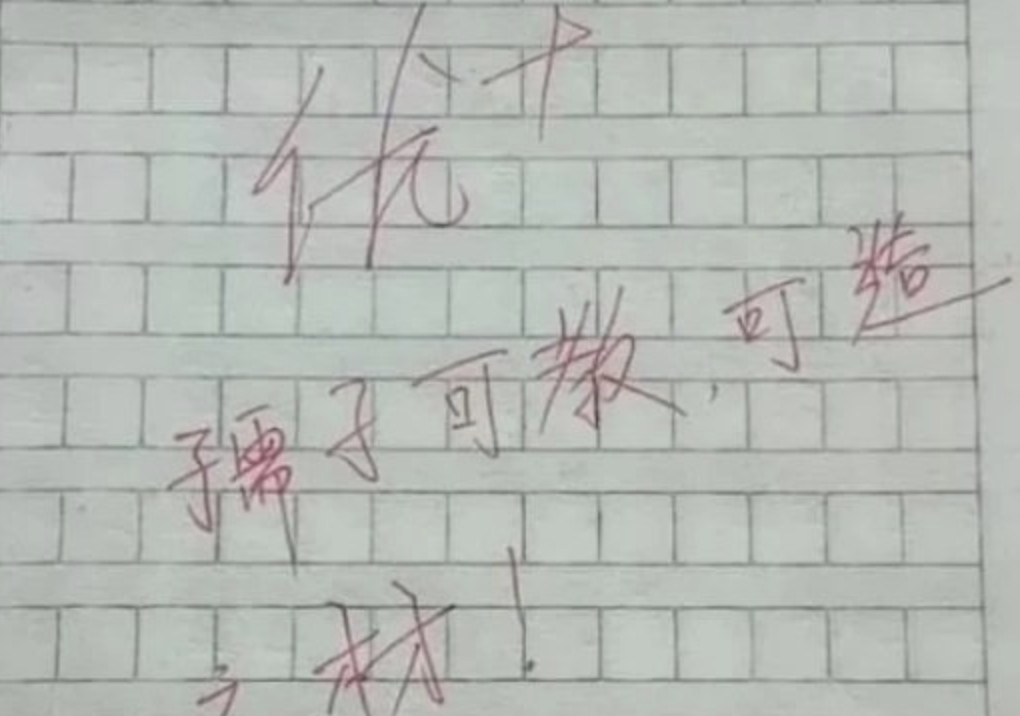 优+
孺子可教,可造
之材!